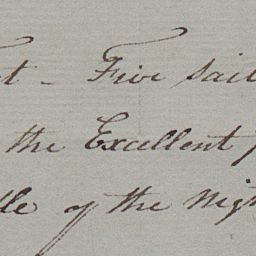 t - Five sail
the Excellent
of the nig